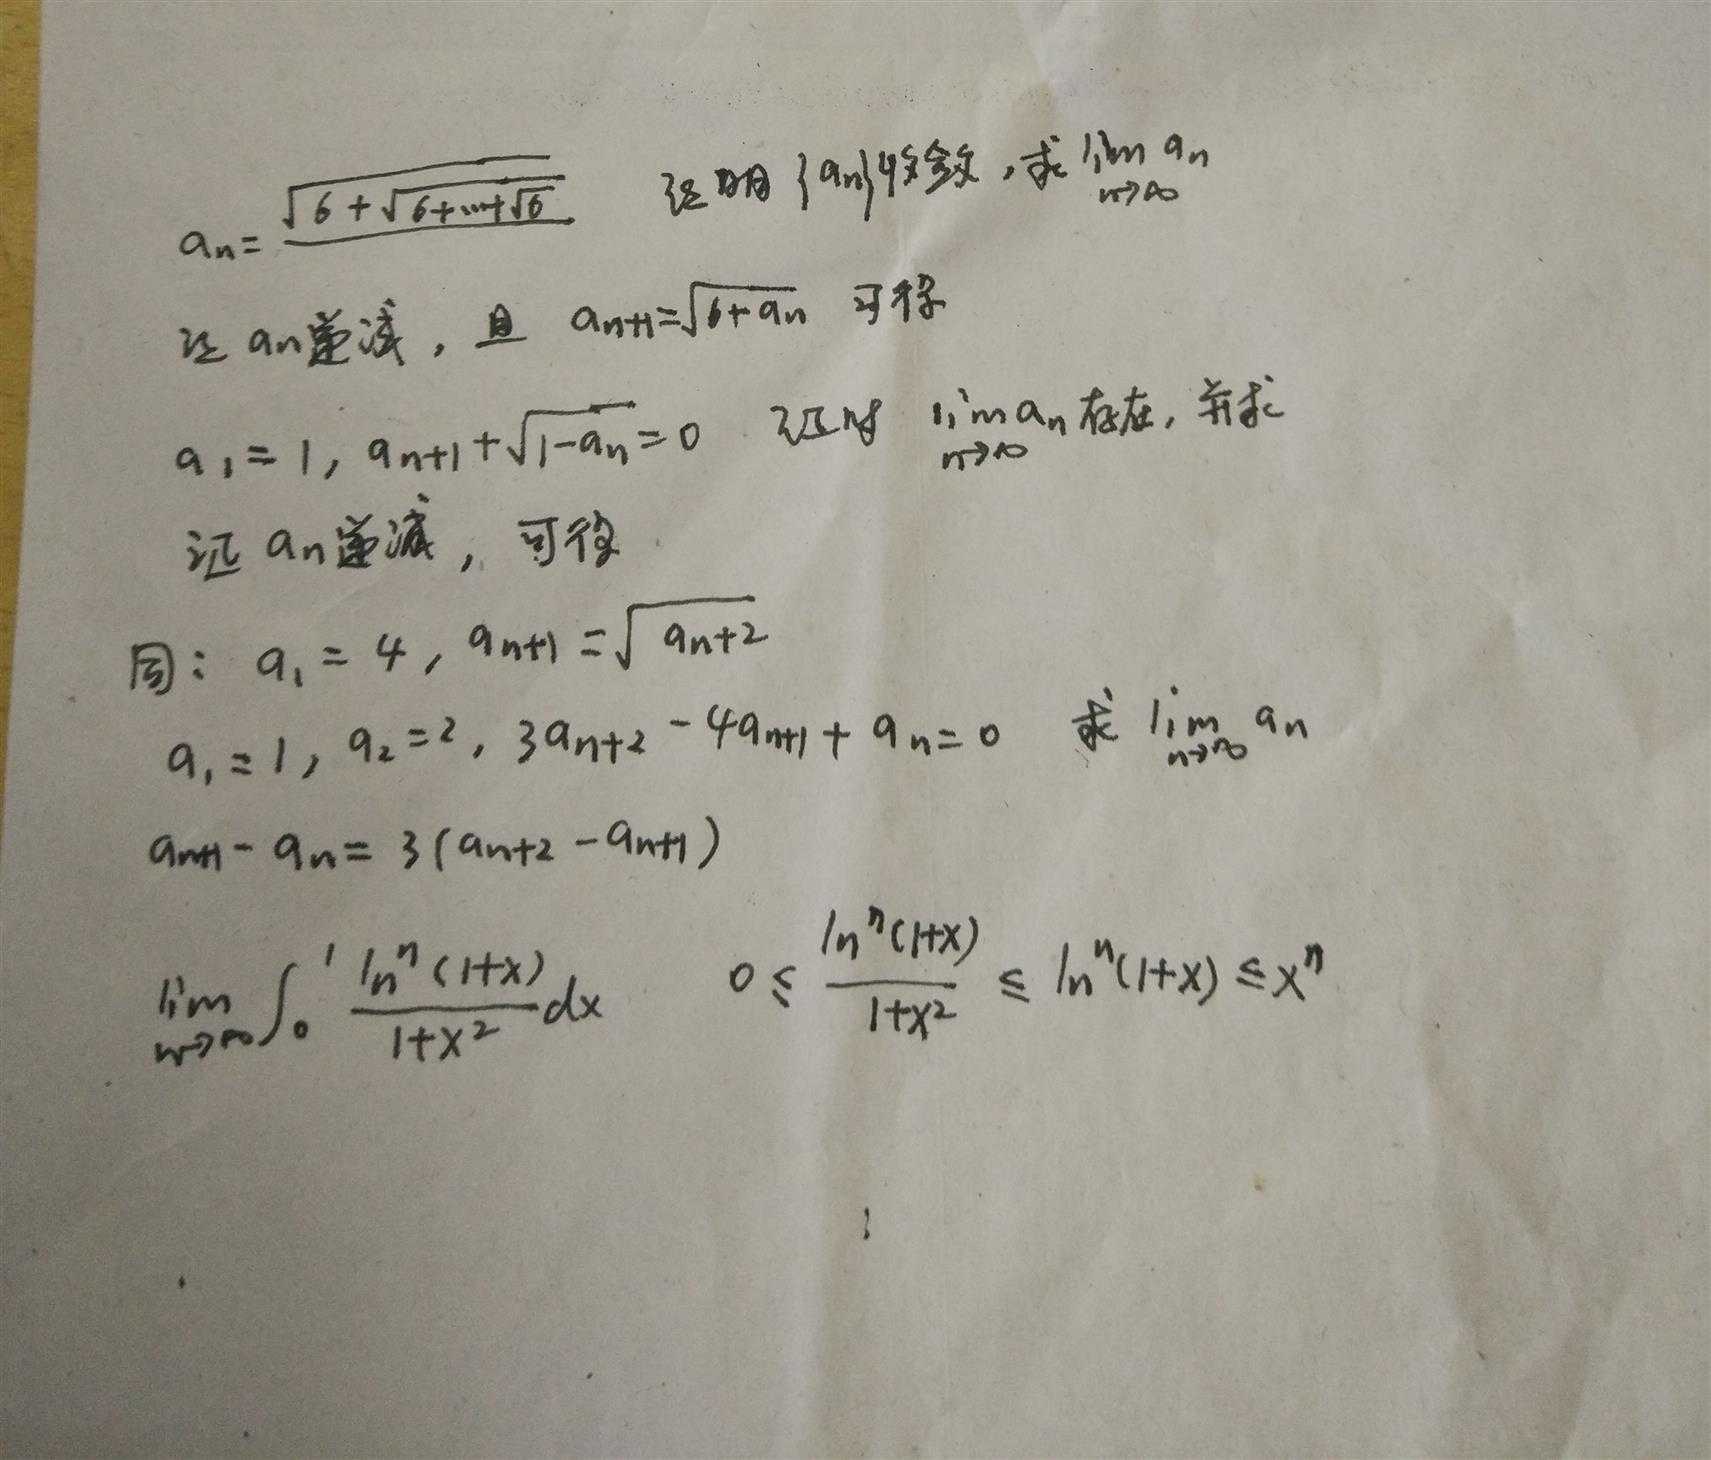 aₙ = √(6+√(6+⋯+√6)) 证明{aₙ}收敛,求 lim_{n→∞} aₙ
证 aₙ递减,且 aₙ₊₁=√(6+aₙ) 可得
a₁=1, aₙ₊₁+√(1-aₙ)=0 证明 lim_{n→∞} aₙ存在,并求
证 aₙ递减,可得
同: a₁=4, aₙ₊₁=√(aₙ+2)
a₁=1, a₂=2, 3aₙ₊₂-4aₙ₊₁+aₙ=0 求 lim_{n→∞} aₙ
aₙ₊₁-aₙ=3(aₙ₊₂-aₙ₊₁)
lim_{n→∞} ∫₀¹ lnⁿ(1+x)/(1+x²) dx 0≤lnⁿ(1+x)/(1+x²)≤lnⁿ(1+x)≤xⁿ